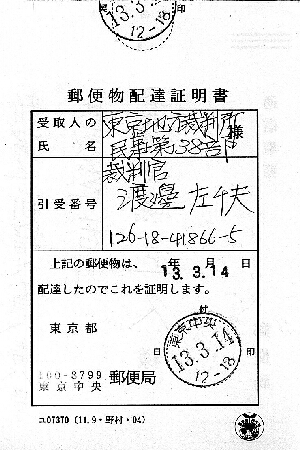 13.3.14
12-18
印
郵便物配達証明書
受取人の氏名
東京地方裁判所 様
民事第38部
裁判官
渡邉
引受番号
126-18-41866-5
上記の郵便物は、 年 月 日
13.3.14
配達したのでこれを証明します。
東京都
日付印
東京中央
13.3.14
12-18
100-8799
東京中央 郵便局
コ07370 (11.9・野村・04)